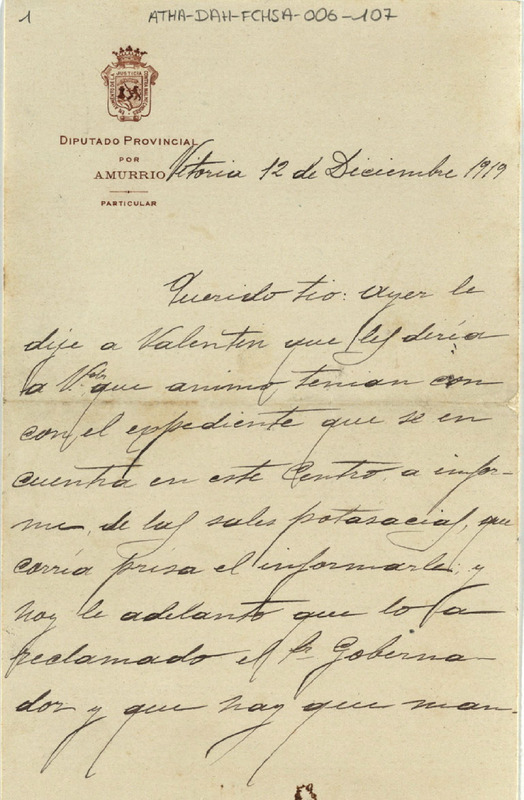 1
ATHA-DAH-FCHSA-006-107
JUSTICIA
DIPUTADO PROVINCIAL
POR
AMURRIO
PARTICULAR
Vitoria 12 de Diciembre 1919
Querido tio: ayer le
dije a Valentin que les diria
a Vds que animo tenian con
con el expediente que se en
cuentra en este Centro, a infor-
me, de las sales potasacias, que
corria prisa el informarle, y
hoy le adelanto que lo a
reclamado el Sr Goberna-
dor y que hay que man-